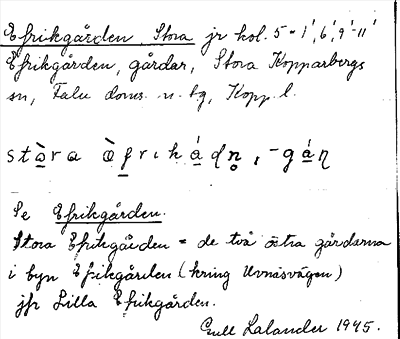 Efrikgården, Stora jr kol. 5-1', 6', 9'-11'
Efrikgården, gårdar, Stora Kopparbergs
sn, Falu doms. n. tg, Kopp. l.
stò̲ra ὼ̲friká̲dn̥, -gá̲ɳ
Se Efrikgården.
Stora Efrikgården = de två östra gårdarna
i byn Efrikgården (kring Uvnäsvägen)
jfr Lilla Efrikgården.
Lalander 1945.